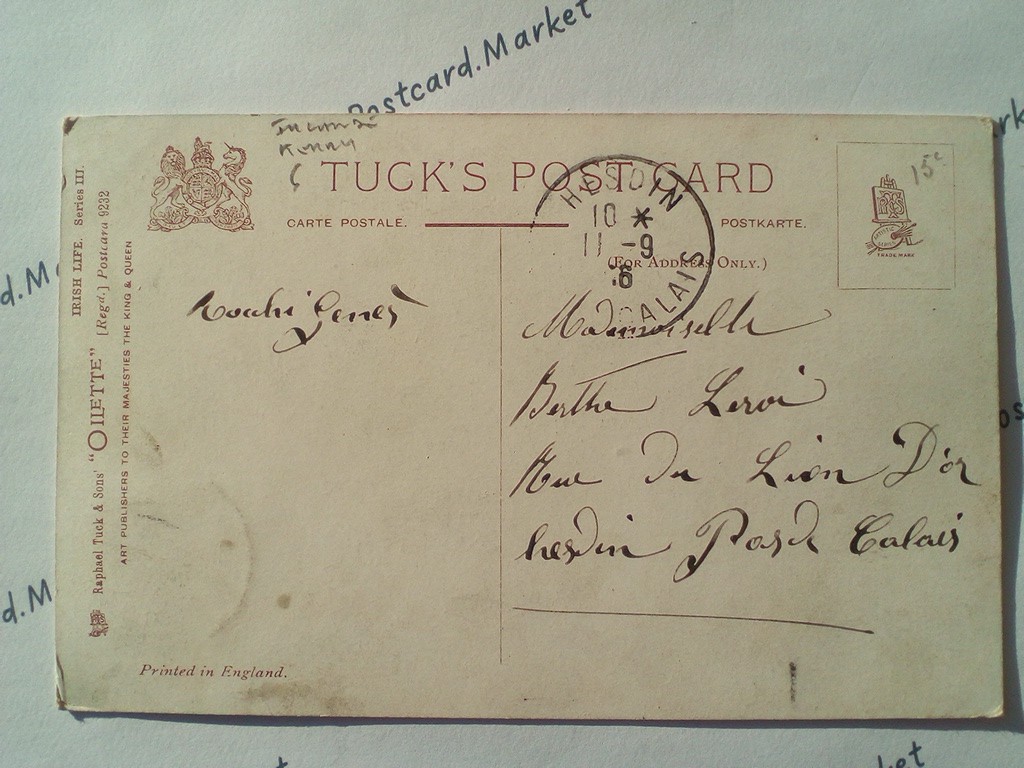 Postcard.Market
IRELAND
KERRY
TUCK'S POST CARD
CARTE POSTALE.
POSTKARTE.
(FOR ADDRESS ONLY.)
15c
TRADE MARK
HESDIN
10 *
11 -9
CALAIS
Mademoiselle
Berthe Leroi
Rue Du Lion D'or
hesdin Pas de Calais
IRISH LIFE. Series III.
Raphael Tuck & Sons' "OILETTE" [Regd.] Postcard 9232
ART PUBLISHERS TO THEIR MAJESTIES THE KING & QUEEN
Printed in England.
d.M
rk
os
d.M
et